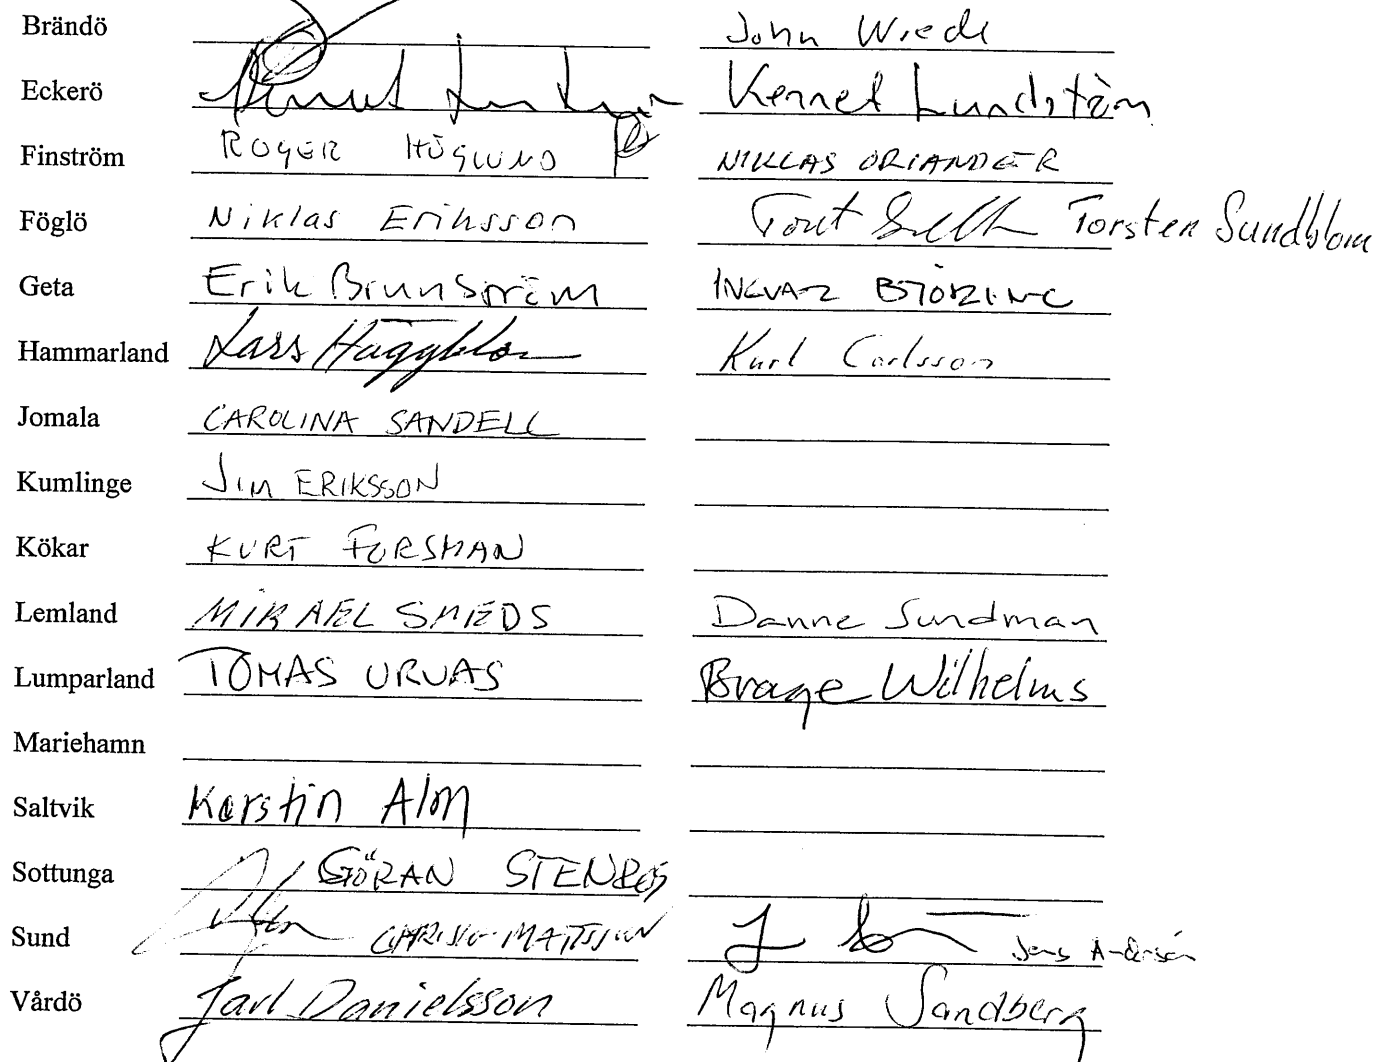 Brändö John Wiede
Eckerö Kennet Lundström
Finström ROGER HÖGLUND NIKLAS ORIANDER
Föglö Niklas Eriksson Torsten Sundblom
Geta Erik Brunström INGVAR BJÖRLING
Hammarland Lars Häggblom Kurt Carlsson
Jomala CAROLINA SANDELL
Kumlinge JIM ERIKSSON
Kökar KURT FORSMAN
Lemland MIKAEL SMEDS Danne Sundman
Lumparland TOMAS URVAS Brage Wilhelms
Mariehamn
Saltvik Kerstin Alm
Sottunga GÖRAN STENROS
Sund MATTSSON Jens Andersén
Vårdö Jarl Danielsson Magnus Sandberg